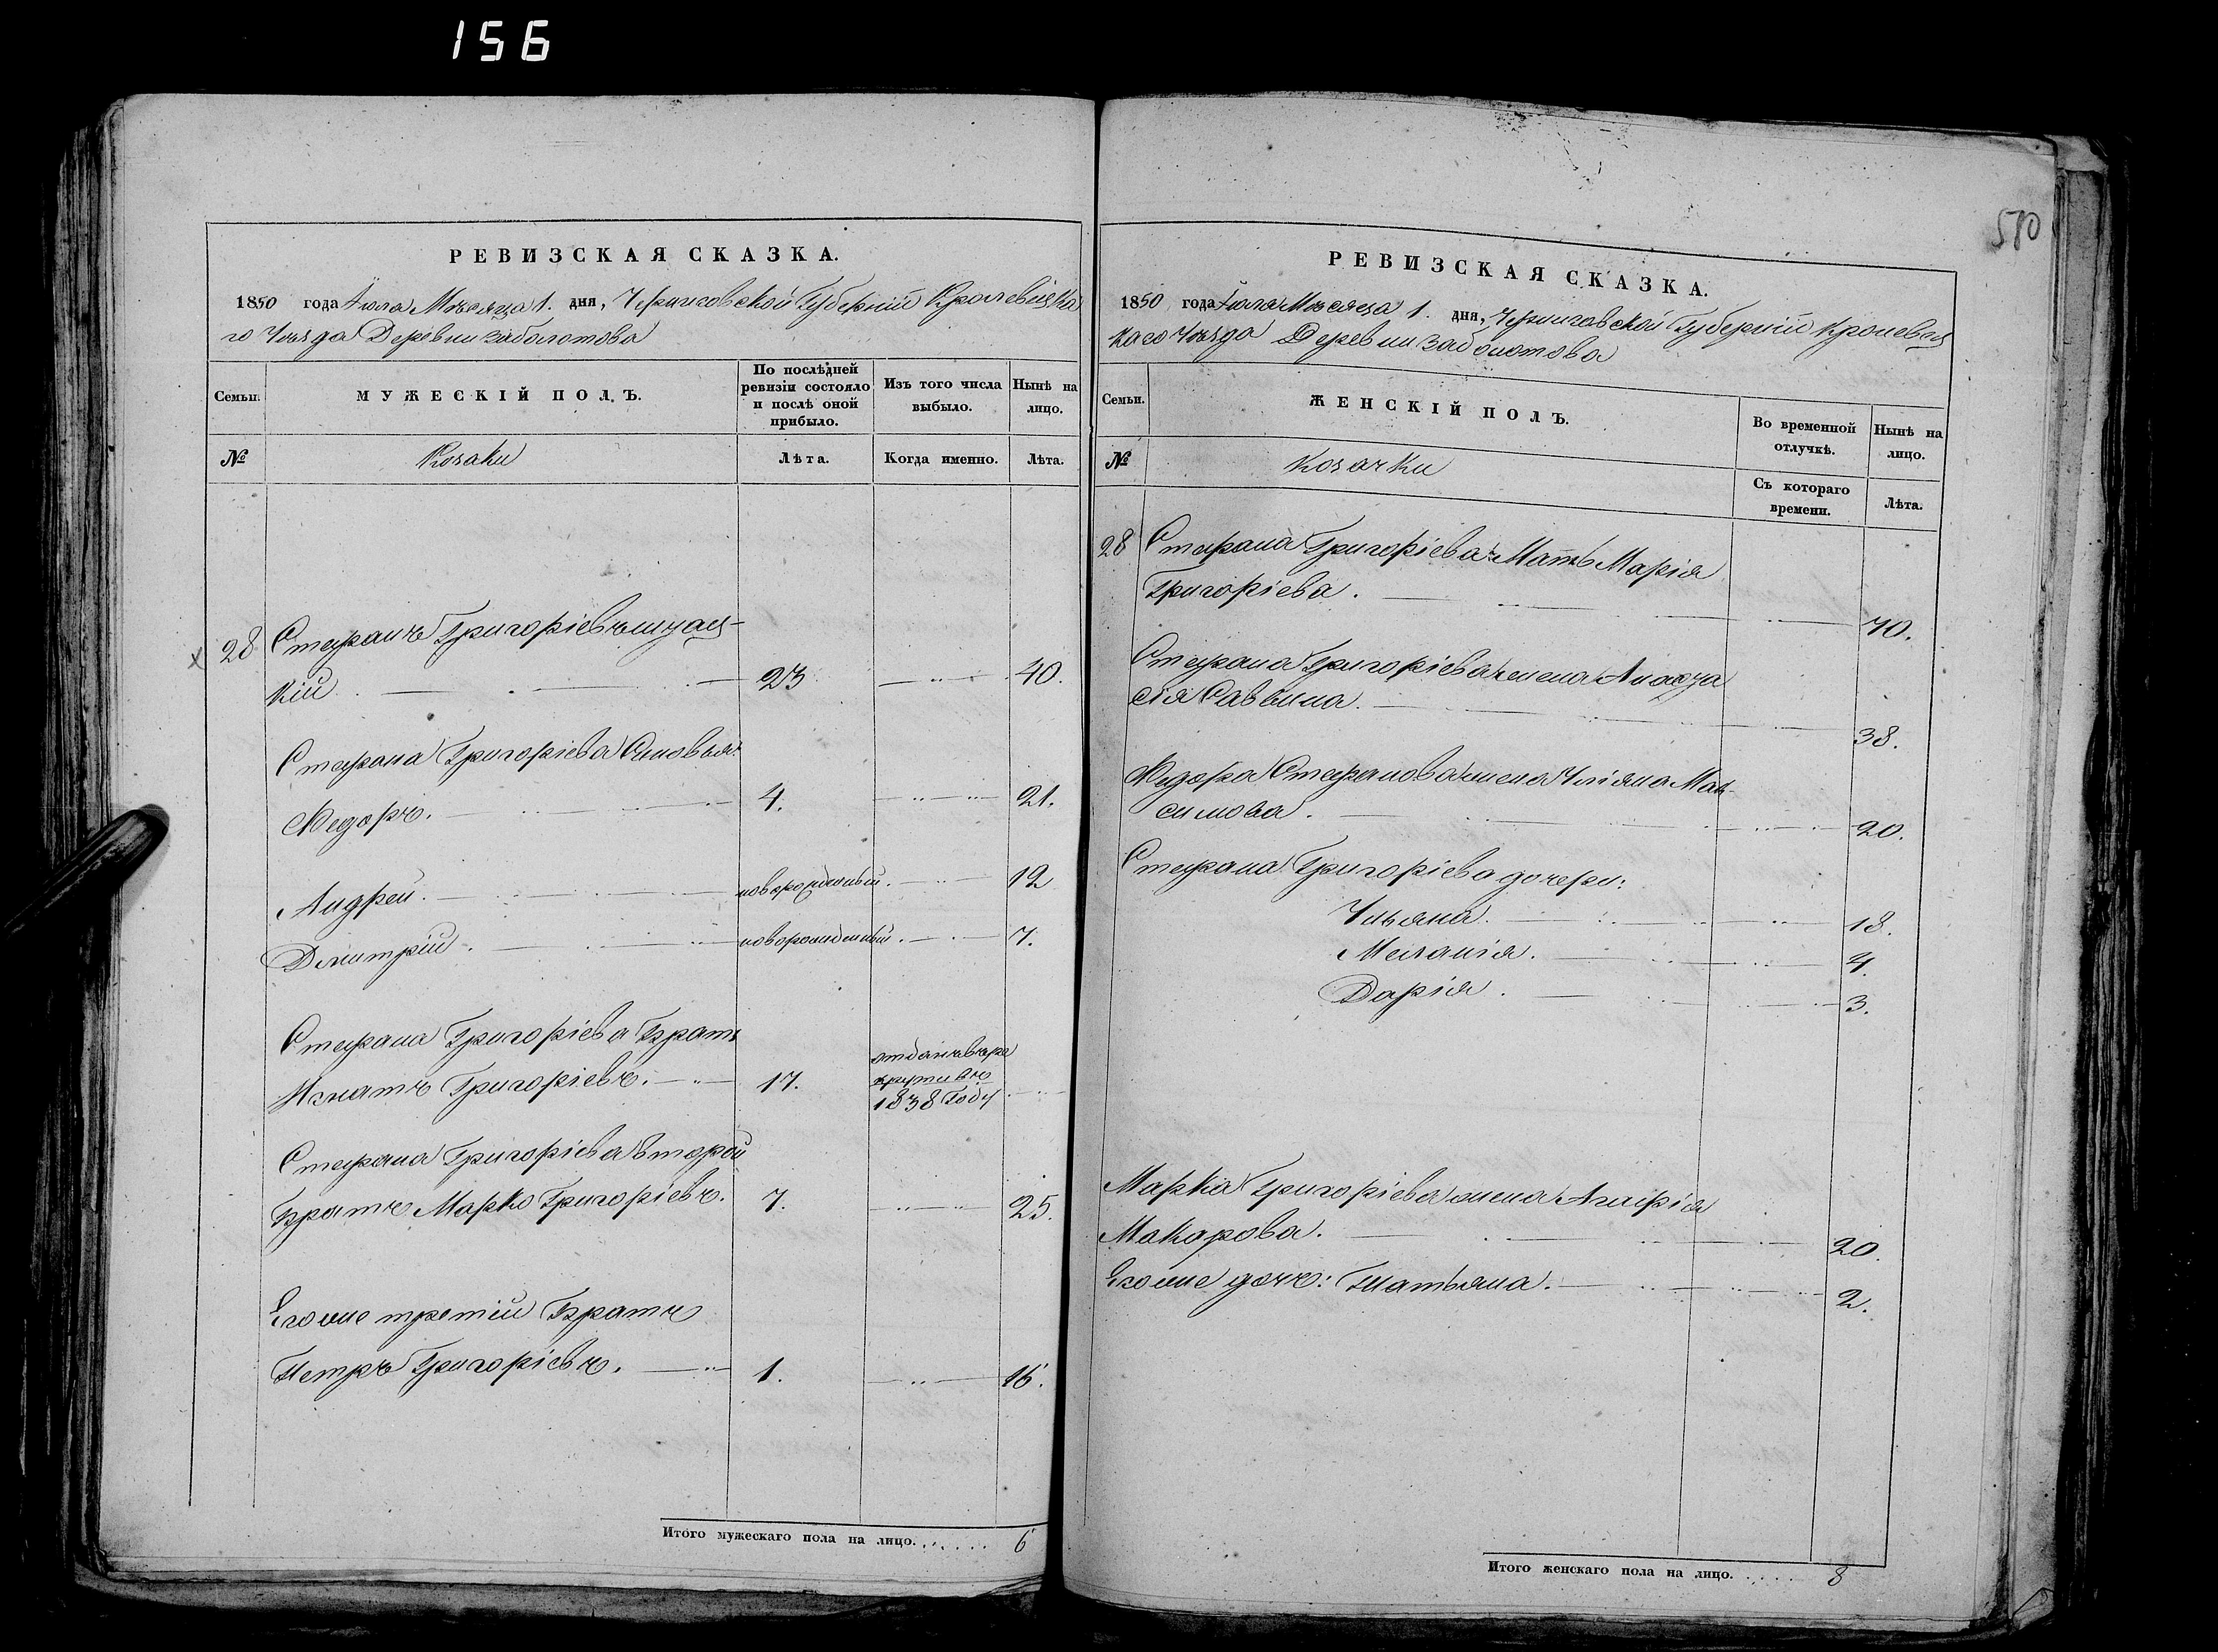 156
580
РЕВИЗСКАЯ СКАЗКА.
1850 года Іюля Мѣсяца 1. дня, Черниговской Губерніи Кролевецка
го Уѣзда Деревни Заболотова
Семьи.
МУЖЕСКІЙ ПОЛЪ.
По послѣдней ревизіи состояло и послѣ оной прибыло.
Изъ того числа выбыло.
Нынѣ на лицо.
№
Козаки
Лѣта.
Когда именно.
Лѣта.
28 Стефанъ Григоріевъ
кій 23 40.
Стефана Григоріева Сыновья:
Федоръ. 4. 21.
Андрей. новорожденный. 12
Дмитрій. новорожденный. 7.
Стефана Григоріева Братъ
Игнатъ Григоріевъ. 17. отданъ въ ре
круты въ
1838 Году
Стефана Григоріева второй
Братъ Марко Григоріевъ. 7. 25.
Его же третій Братъ
Петръ Григоріевъ. 1. 16.
Итого мужескаго пола на лицо. 6
РЕВИЗСКАЯ СКАЗКА.
1850 года Іюля Мѣсяца 1. дня, Черниговской Губерніи Кролевец
каго Уѣзда Деревни Заболотова
Семьи.
ЖЕНСКІЙ ПОЛЪ.
Во временной отлучкѣ.
Нынѣ на лицо.
№
Козачки
Съ котораго времени.
Лѣта.
28 Стефана Григоріева Мать Марія
Григоріева. 70.
Стефана Григоріева жена Анаста
сія Саввина. 38.
Федора Стефанова жена Уліяна Мак
симова. 20.
Стефана Григоріева дочери:
Ульяна. 18.
Меланія. 4.
Дарія. 3.
Марка Григоріева жена Агафія
Макарова. 20.
Его же дочь: Татьяна. 2.
Итого женскаго пола на лицо. 8